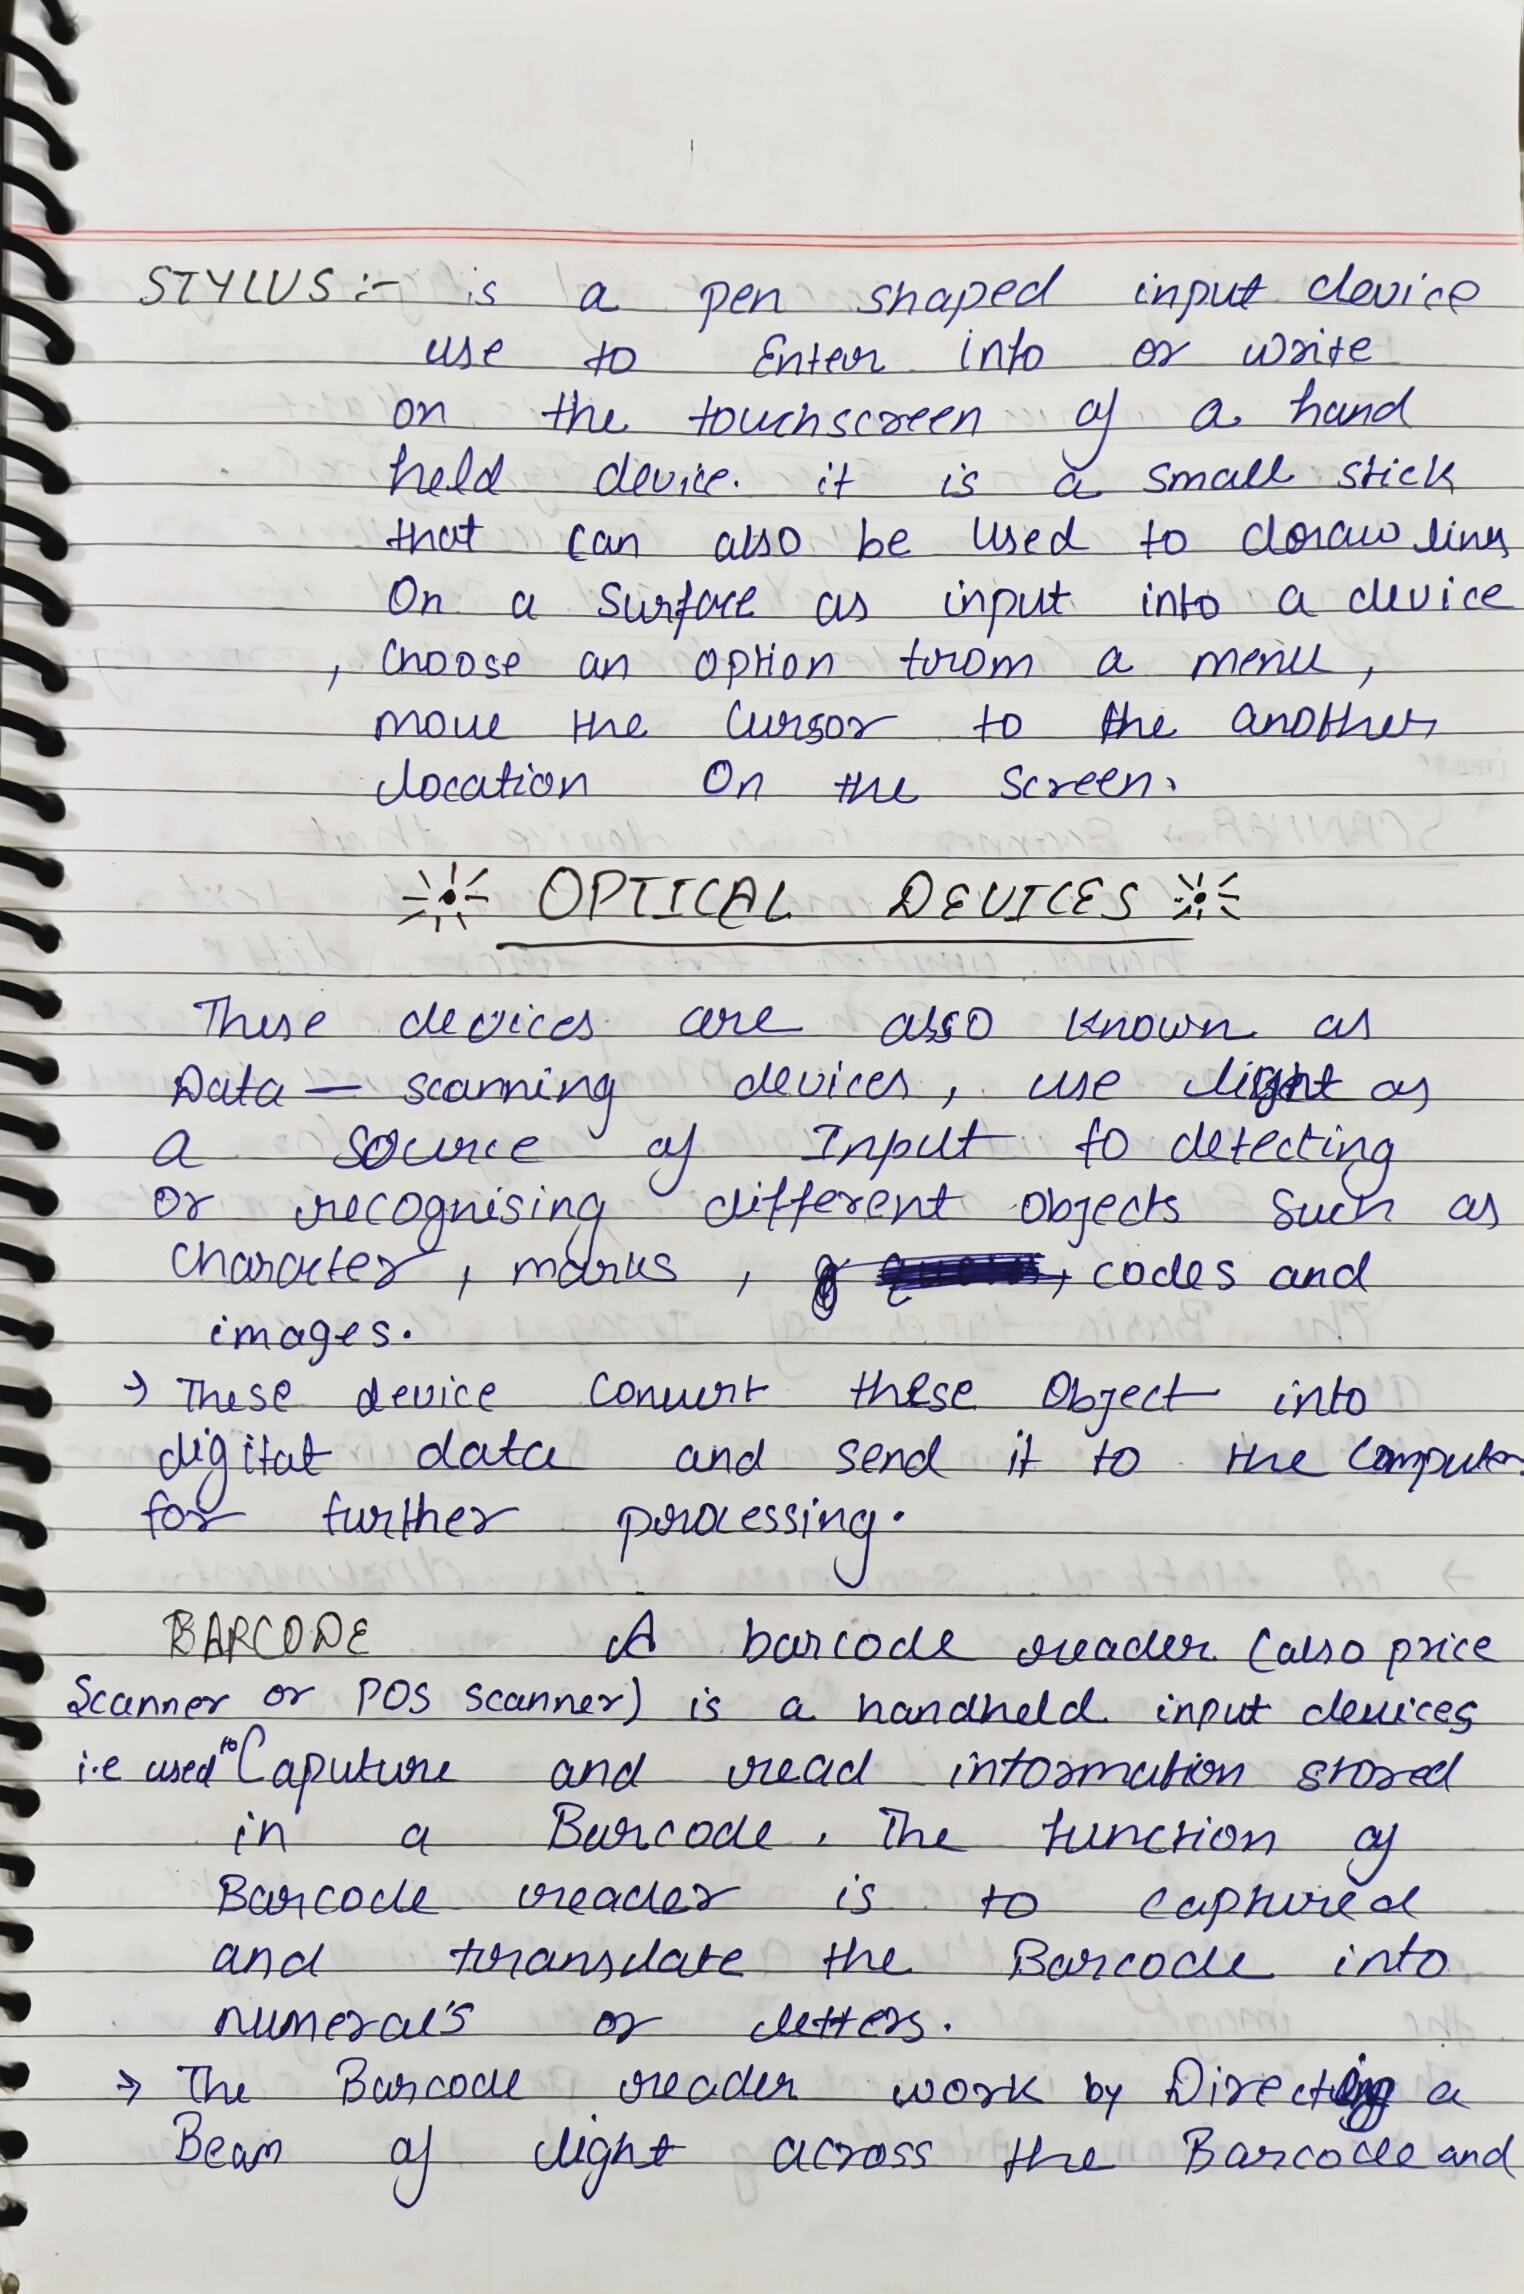 STYLUS :- is a pen shaped input device
use to Enter into or write
on the touchscreen of a hand
held device. it is a small stick
that can also be used to draw lines
On a surface as input into a device
, Choose an option from a menu,
move the cursor to the another
location On the screen.
OPTICAL DEVICES
These devices are also known as
Data — scanning devices, use light as
a source of Input to detecting
or recognising different objects such as
character, marks, codes and
images.
→ These device convert these Object into
digital data and send it to the computer
for further processing.
BARCODE A barcode reader (also price
Scanner or POS scanner) is a handheld input devices
i.e used to Caputure and read information stored
in a Barcode. The function of
Barcode reader is to captured
and translate the Barcode into
numeral's or letters.
→ The Barcode reader work by Directing a
Beam of light across the Barcode and